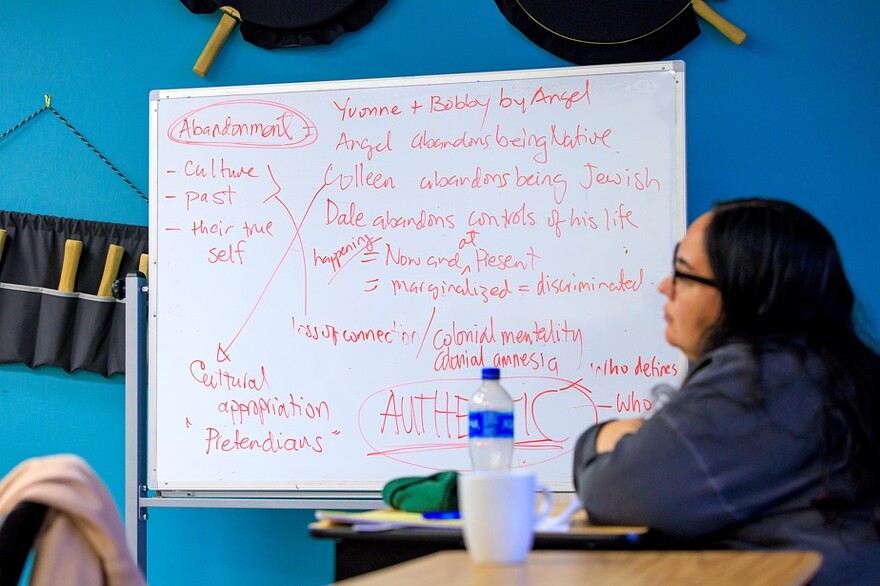 Abandonment =
- Culture
- past
- their true
self
Yvonne + Bobby by Angel
Angel abandons being Native
Colleen abandons being Jewish
Dale abandons controls of his life
happening = Now and at Present
= marginalized = discriminated
loss of connection / colonial mentality
colonial amnesia
Cultural
appropriation
"Pretendians"
who defines
AUTHENTIC - who